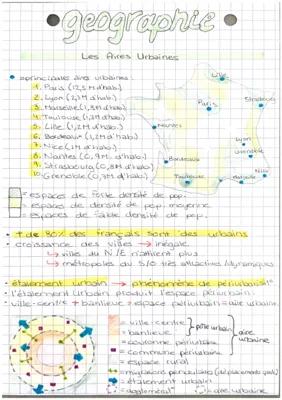 geographie
Les Aires Urbaines
principales aires urbaines :
1. Paris (12,5 M d'hab.)
2. Lyon (2,3 M d'hab.)
3. Marseille (1,8 M d'hab.)
4. Toulouse (1,3 M d'hab.)
5. Lille (1,2 M d'hab.)
6. Bordeaux (1,2 M d'hab.)
7. Nice (1 M d'hab.)
8. Nantes (0,9 M. d'hab.)
9. Strasbourg (0,8 M d'hab.)
10. Grenoble (0,7 M d'hab.)
Lille
Paris
Strasbourg
Nantes
Lyon
Grenoble
Bordeaux
Toulouse
Nice
= espaces de forte densité de pop.
= espaces de densité de pop. moyenne
= espaces de faible densité de pop.
+ de 80% des français sont des urbains
croissance des villes → inégale
↳ villes du N/E n'attirent plus
↳ métropoles du S/O très attractives/dynamiques
étalement urbain → phénomène de périurbis°
l'étalement urbain produit l'espace périurbain
ville-centre + banlieue + espace périurbain = aire urbaine
= ville-centre
= banlieue
= couronne périurbaine
= commune périurbaine
= espace rural
= migrations pendulaires
= étalement urbain
= agglomérat°
= aire urbaine
pôle urbain
aire urbaine